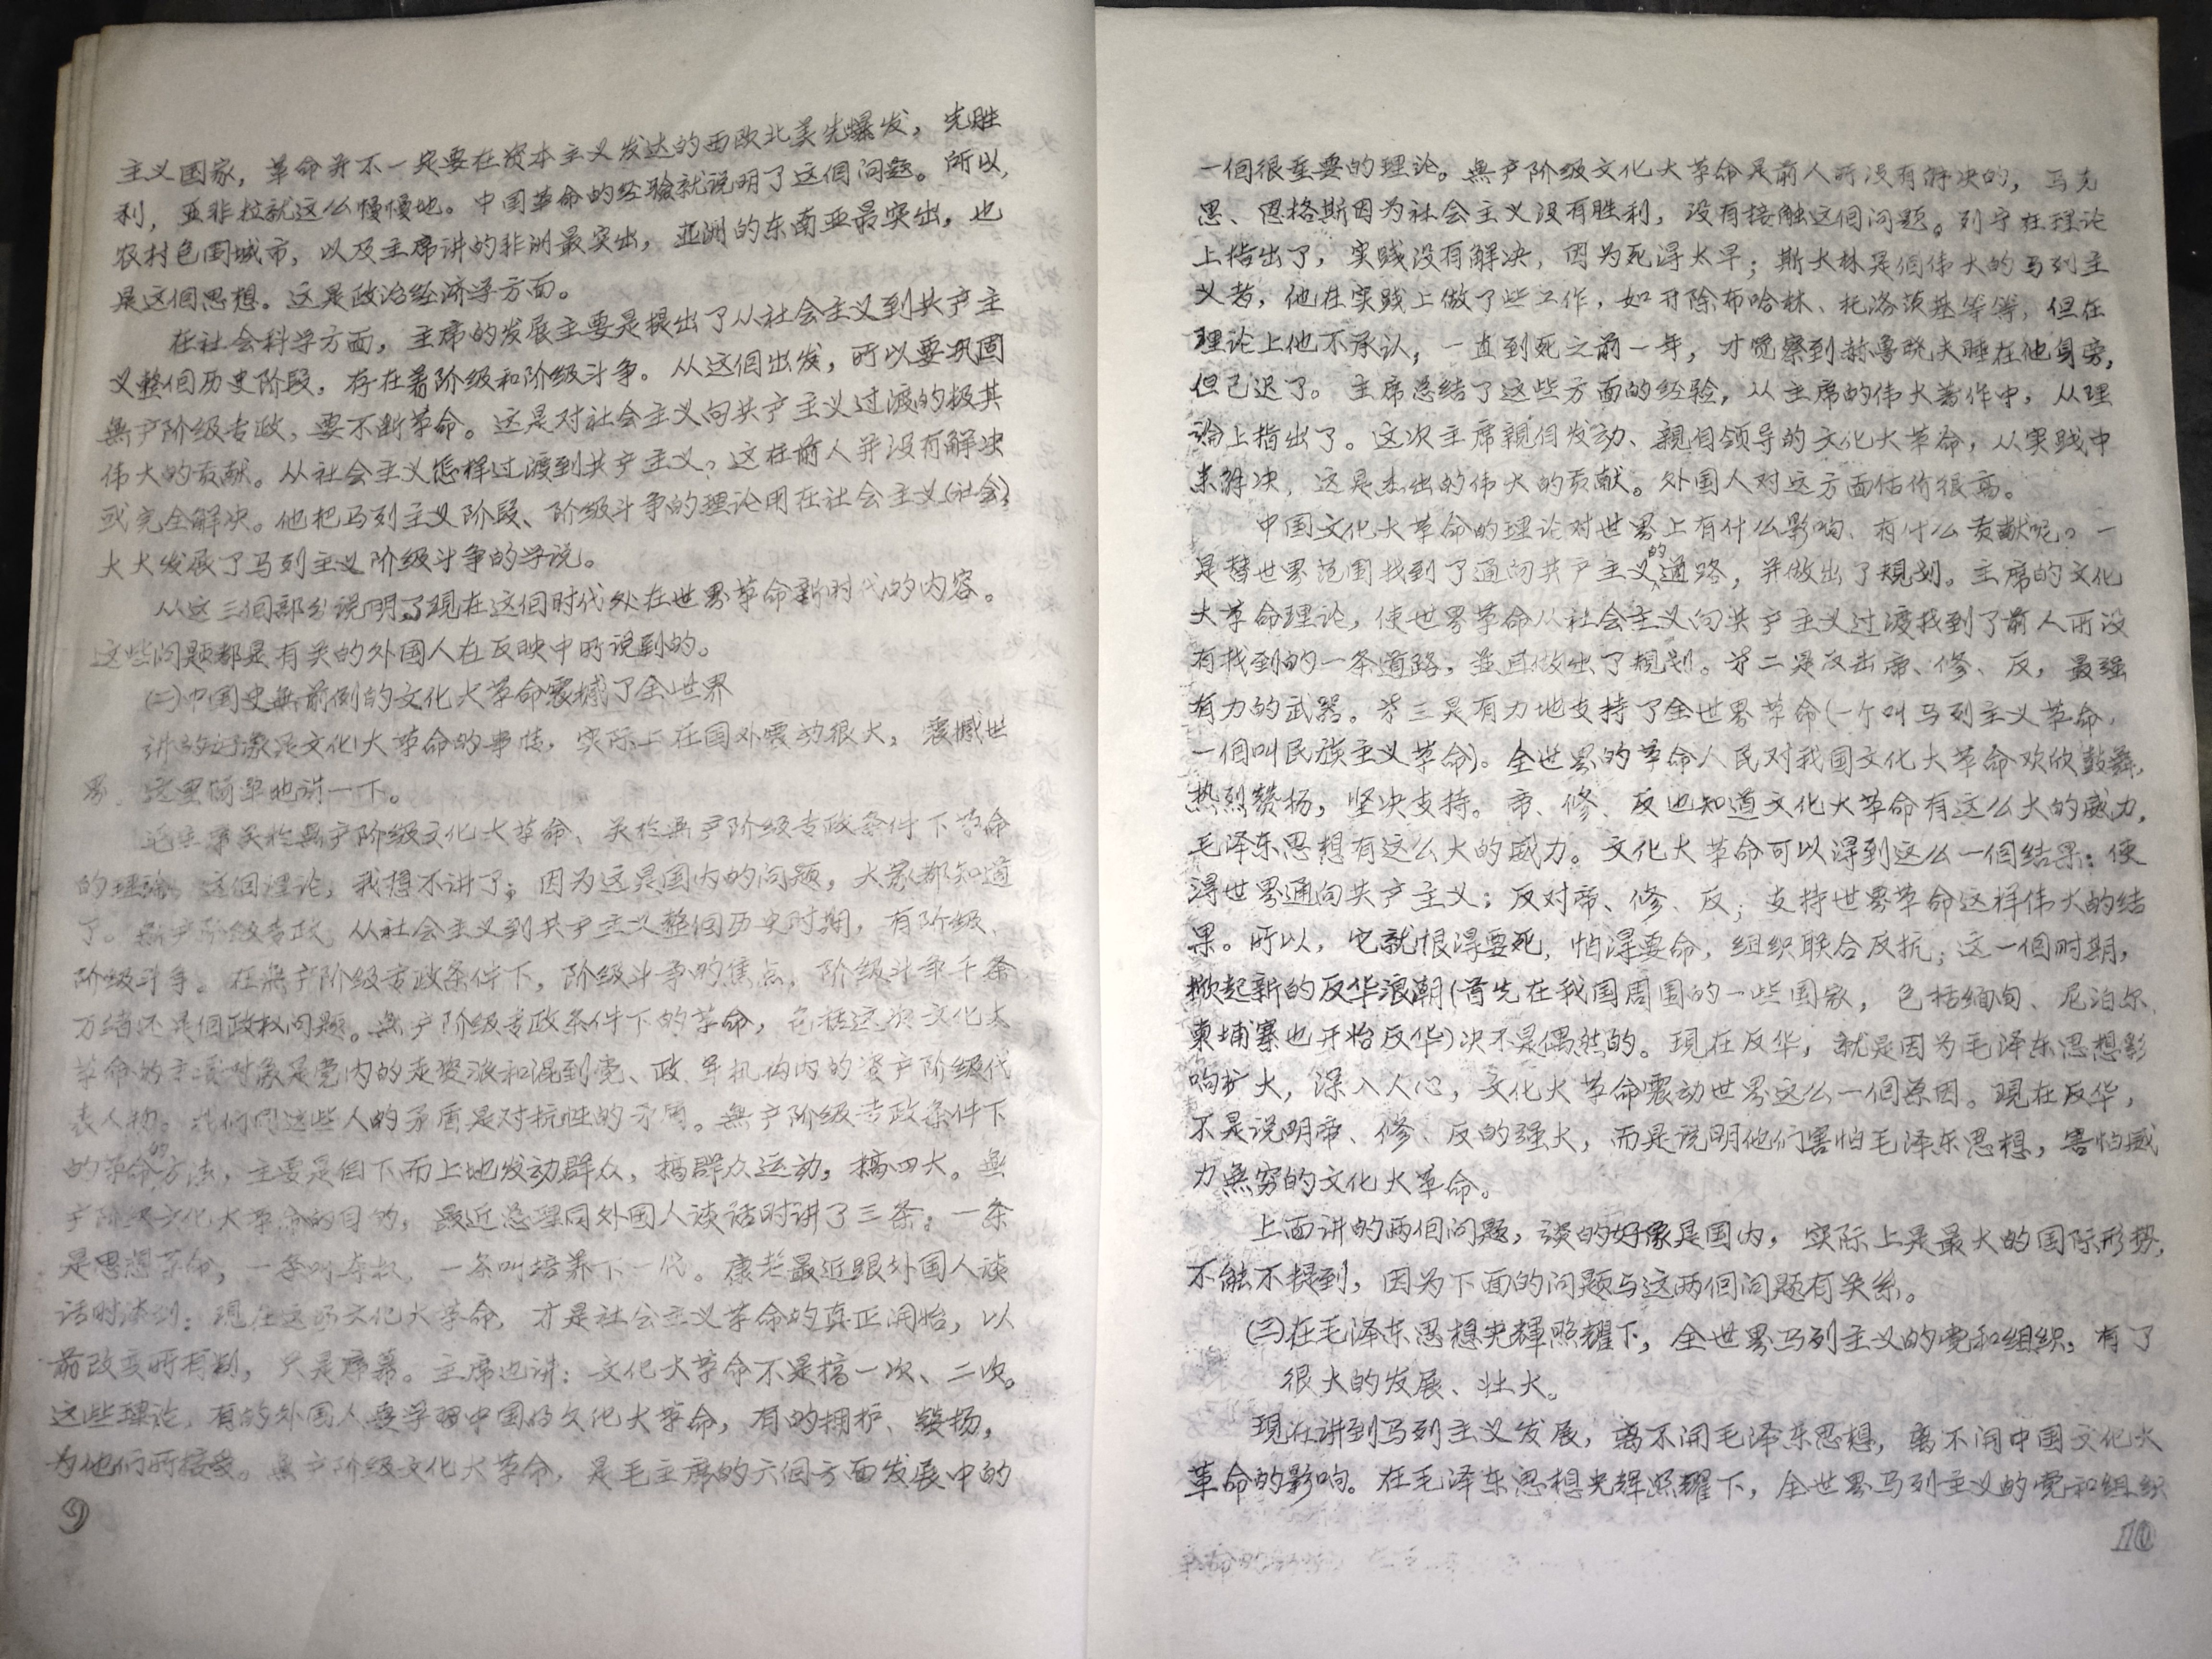 主义国家，革命并不一定要在资本主义发达的西欧北美先爆发，先胜
利，亚非拉就这么慢慢地。中国革命的经验就说明了这個问题。所以，
农村包围城市，以及主席讲的非洲最突出，亚洲的东南亚最突出，也
是这個思想。这是政治经济学方面。
在社会科学方面，主席的发展主要是提出了从社会主义到共产主
义整個历史阶段，存在着阶级和阶级斗争。从这個出发，所以要巩固
無产阶级专政、要不断革命。这是对社会主义向共产主义过渡的极其
伟大的贡献。从社会主义怎样过渡到共产主义？这在前人并没有解决
或完全解决。他把马列主义阶段、阶级斗争的理论用在社会主义(社会)，
大大发展了马列主义阶级斗争的学说。
从这三個部分说明了现在这個时代处在世界革命新时代的内容。
这些问题都是有关的外国人在反映中所说到的。
(二)中国史無前例的文化大革命震撼了全世界
讲的好象是文化大革命的事情，实际上在国外震动很大，震撼世
界，这里简单地讲一下。
毛主席关於無产阶级文化大革命、关於無产阶级专政条件下革命
的理论，这個理论，我想不讲了，因为这是国内的问题，大家都知道
了。無产阶级专政，从社会主义到共产主义整個历史时期，有阶级、
阶级斗争。在無产阶级专政条件下，阶级斗争的焦点，阶级斗争千条
万绪还是個政权问题。無产阶级专政条件下的革命，包括这次文化大
革命的主要对象是党内的走资派和混到党、政、军机构内的资产阶级代
表人物。我们同这些人的矛盾是对抗性的矛盾。無产阶级专政条件下
的革命的方法，主要是自下而上地发动群众，搞群众运动，搞四大。無
产阶级文化大革命的目的，最近总理同外国人谈话时讲了三条。一条
是思想革命，一条叫夺权，一条叫培养下一代。康老最近跟外国人谈
话时谈到：现在这场文化大革命，才是社会主义革命的真正开始，以
前改变所有制，只是序幕。主席也讲：文化大革命不是搞一次、二次。
这些理论，有的外国人要学习中国的文化大革命，有的拥护、赞扬，
为他们所接受。無产阶级文化大革命，是毛主席的六個方面发展中的
9
一個很重要的理论。無产阶级文化大革命是前人所没有解决的，马克
思、恩格斯因为社会主义没有胜利，没有接触这個问题。列宁在理论
上指出了，实践没有解决，因为死得太早；斯大林是個伟大的马列主
义者，他在实践上做了些工作，如开除布哈林、托洛茨基等等，但在
理论上他不承认，一直到死之前一年，才觉察到赫鲁晓夫睡在他身旁，
但已迟了。主席总结了这些方面的经验，从主席的伟大著作中，从理
论上指出了。这次主席親自发动、親自领导的文化大革命，从实践中
来解决，这是杰出的伟大的贡献。外国人对这方面估价很高。
中国文化大革命的理论对世界上有什么影响、有什么贡献呢？一
是替世界范围找到了通向共产主义的道路，并做出了规划。主席的文化
大革命理论，使世界革命从社会主义向共产主义过渡找到了前人所没
有找到的一条道路，並且做出了规划。第二是反击帝、修、反，最强
有力的武器。第三是有力地支持了全世界革命(一个叫马列主义革命，
一個叫民族主义革命)。全世界的革命人民对我国文化大革命欢欣鼓舞，
热烈赞扬，坚决支持。帝、修、反也知道文化大革命有这么大的威力，
毛泽东思想有这么大的威力。文化大革命可以得到这么一個结果：使
得世界通向共产主义；反对帝、修、反；支持世界革命这样伟大的结
果。所以，它就恨得要死，怕得要命，组织联合反抗；这一個时期，
掀起新的反华浪潮(首先在我国周围的一些国家，包括缅甸、尼泊尔、
柬埔寨也开始反华)决不是偶然的。现在反华，就是因为毛泽东思想影
响扩大，深入人心，文化大革命震动世界这么一個原因。现在反华，
不是说明帝、修、反的强大，而是说明他们害怕毛泽东思想，害怕威
力無穷的文化大革命。
上面讲的两個问题，谈的好像是国内，实际上是最大的国际形势，
不能不提到，因为下面的问题与这两個问题有关系。
(三)在毛泽东思想光輝照耀下，全世界马列主义的党和组织，有了
很大的发展、壮大。
现在讲到马列主义发展，离不开毛泽东思想，离不开中国文化大
革命的影响。在毛泽东思想光辉照耀下，全世界马列主义的党和组织
10